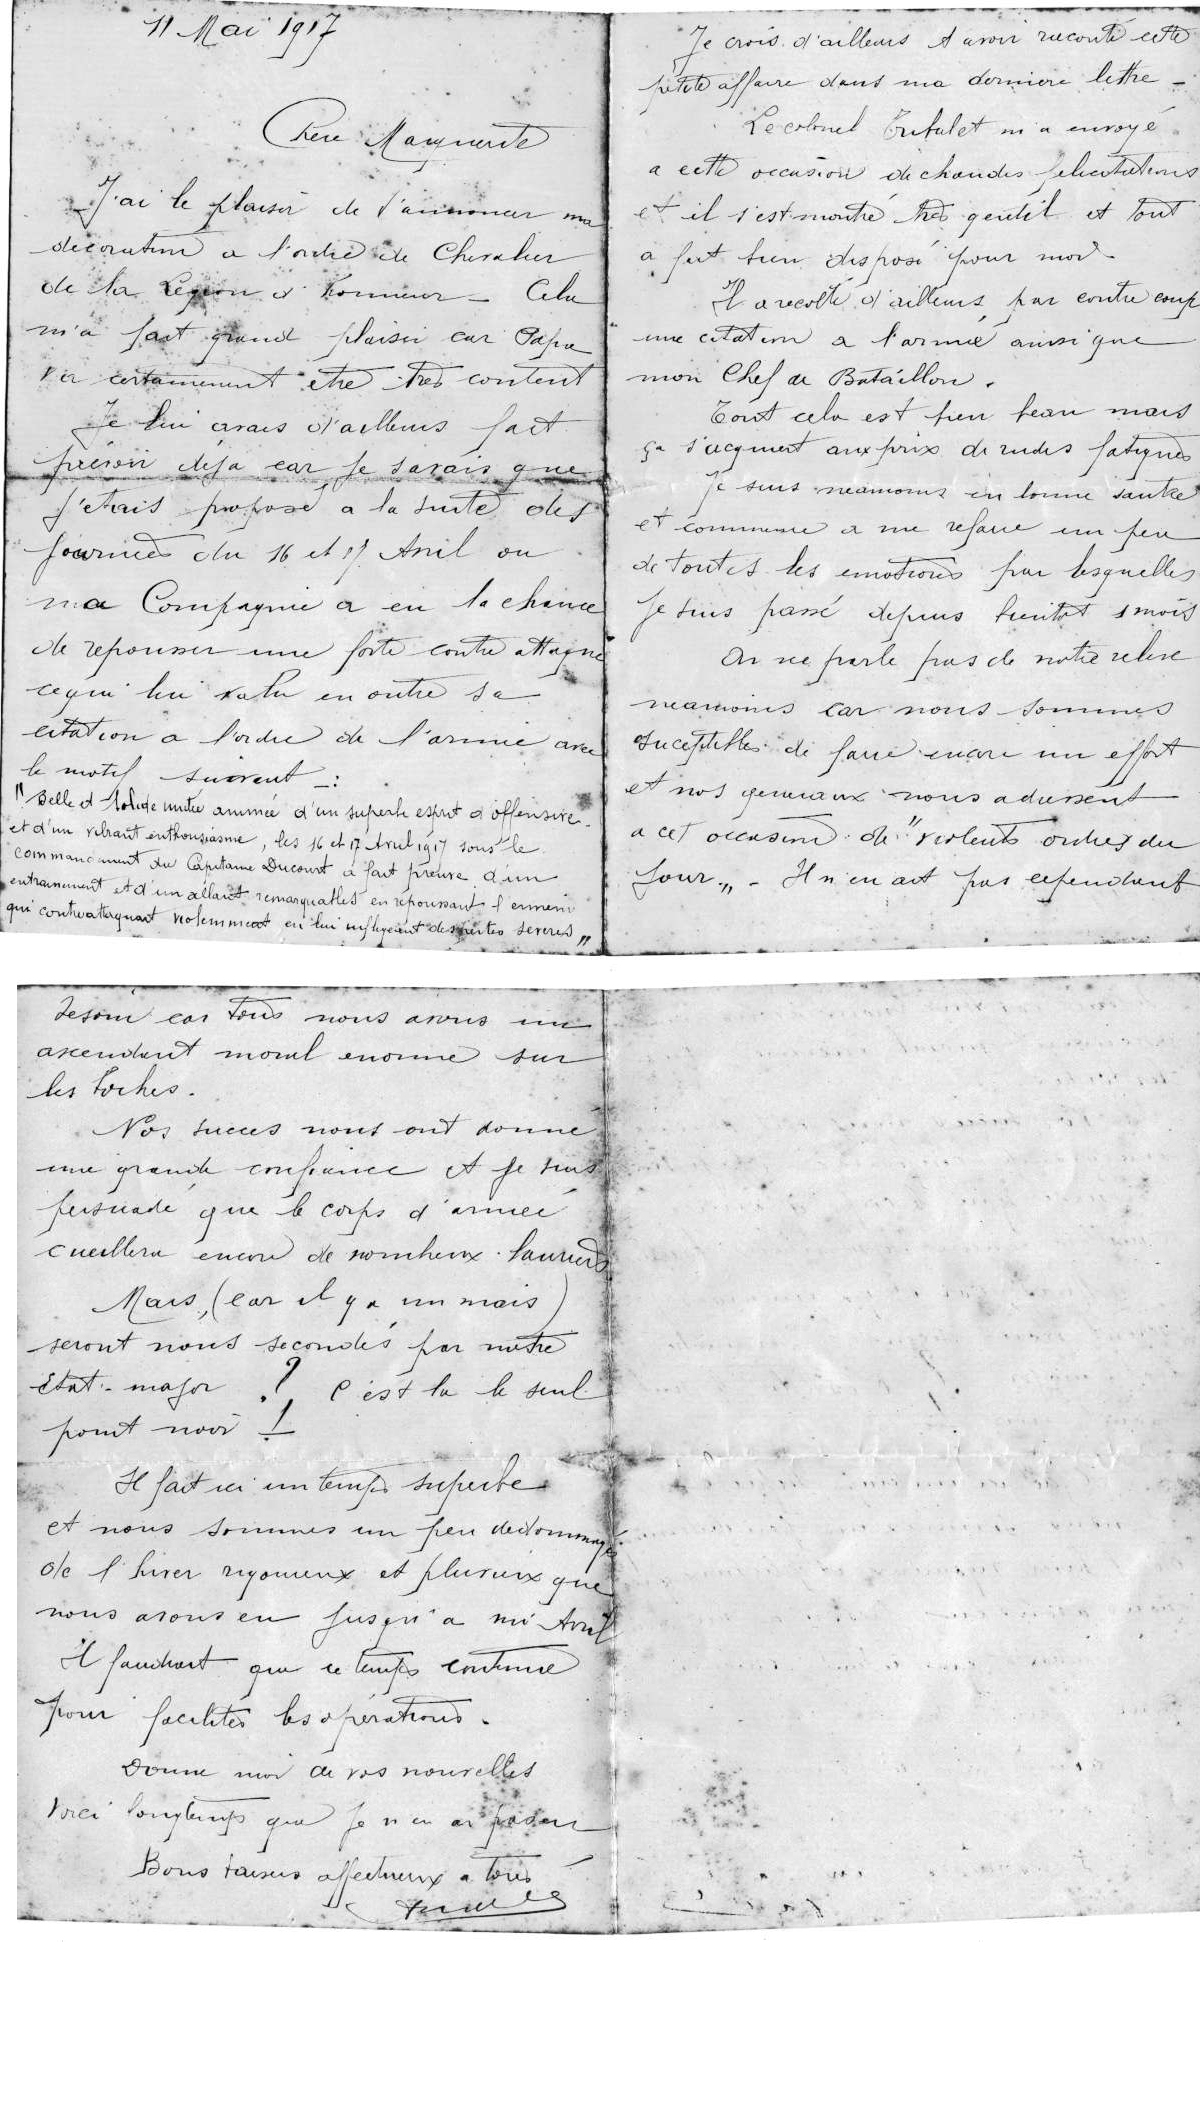 11 Mai 1917
Chere Marguerite
J'ai le plaisir de t'annoncer ma
decoration a l'ordre de Chevalier
de la Legion d'honneur _ Cela
m'a fait grand plaisir car Papa
va certainement etre tres content
Je lui avais d'ailleurs fait
prévoir deja car je savais que
j'etais proposé a la suite des
journées du 16 et 17 Avril ou
ma Compagnie a eu la chance
de repousser une forte contre attaque
ce qui lui valu en outre sa
citation a l'ordre de l'armée avec
le motif suivant _ :
"Belle et solide unité animée d'un superbe esprit d'offensive
et d'un vibrant enthousiasme, les 16 et 17 Avril 1917 sous le
commandement du Capitaine Ducourt a fait preuve d'un
entrainement et d'un allant remarquables en repoussant l'ennemi
qui contreattaquait violemment en lui infligeant des pertes severes"
Je crois d'ailleurs t'avoir raconté cette
petite affaire dans ma derniere lettre _
Le colonel m'a envoyé
a cette occasion de chaudes felicitations
et il s'est montré tres gentil et tout
a fait bien disposé pour moi.
Il a recolté d'ailleurs par contre coup
une citation a l'armée ainsi que
mon Chef de Bataillon.
Tout cela est bien beau mais
ça s'acquiert aux prix de rudes fatigues
Je suis neamoins en bonne santée
et commence a me refaire un peu
de toutes les emotions par lesquelles
je suis passé depuis bientot 1 mois
On ne parle pas de notre releve
neamoins car nous sommes
suceptibles de faire encore un effort
et nos generaux nous adressent
a cet occasion de "violents ordres du
jour" _ Il n'en ait pas cependant
besoin car tous nous avons un
ascendant moral enorme sur
les boches.
Nos succes nous ont donné
une grande confiance et je suis
persuadé que le corps d'armée
cueillera encore de nombreux lauriers
Mais, (car il y a un mais)
seront nous secondés par notre
Etat-major ? C'est la le seul
point noir !
Il fait ici un temps superbe
et nous sommes un peu dedommagés
de l'hiver rigoureux et pluvieux que
nous avons eu jusqu'a mi Avril
Il faudrait que ce temps continue
pour faciliter les opérations.
Donne moi de vos nouvelles
Voici longtemps que je n'en ai pas eu
Bons baisers affectueux a tous